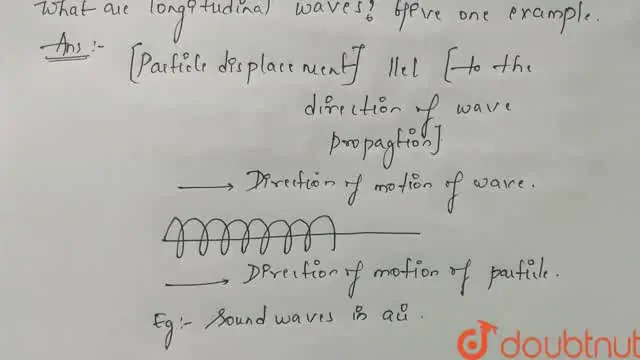 What are longitudinal waves? Give one example.
Ans :-
[Particle displacement] llel [to the
direction of wave
propagtion]
→ Direction of motion of wave.
→ Direction of motion of particle.
Eg :- Sound waves in air.
doubtnut